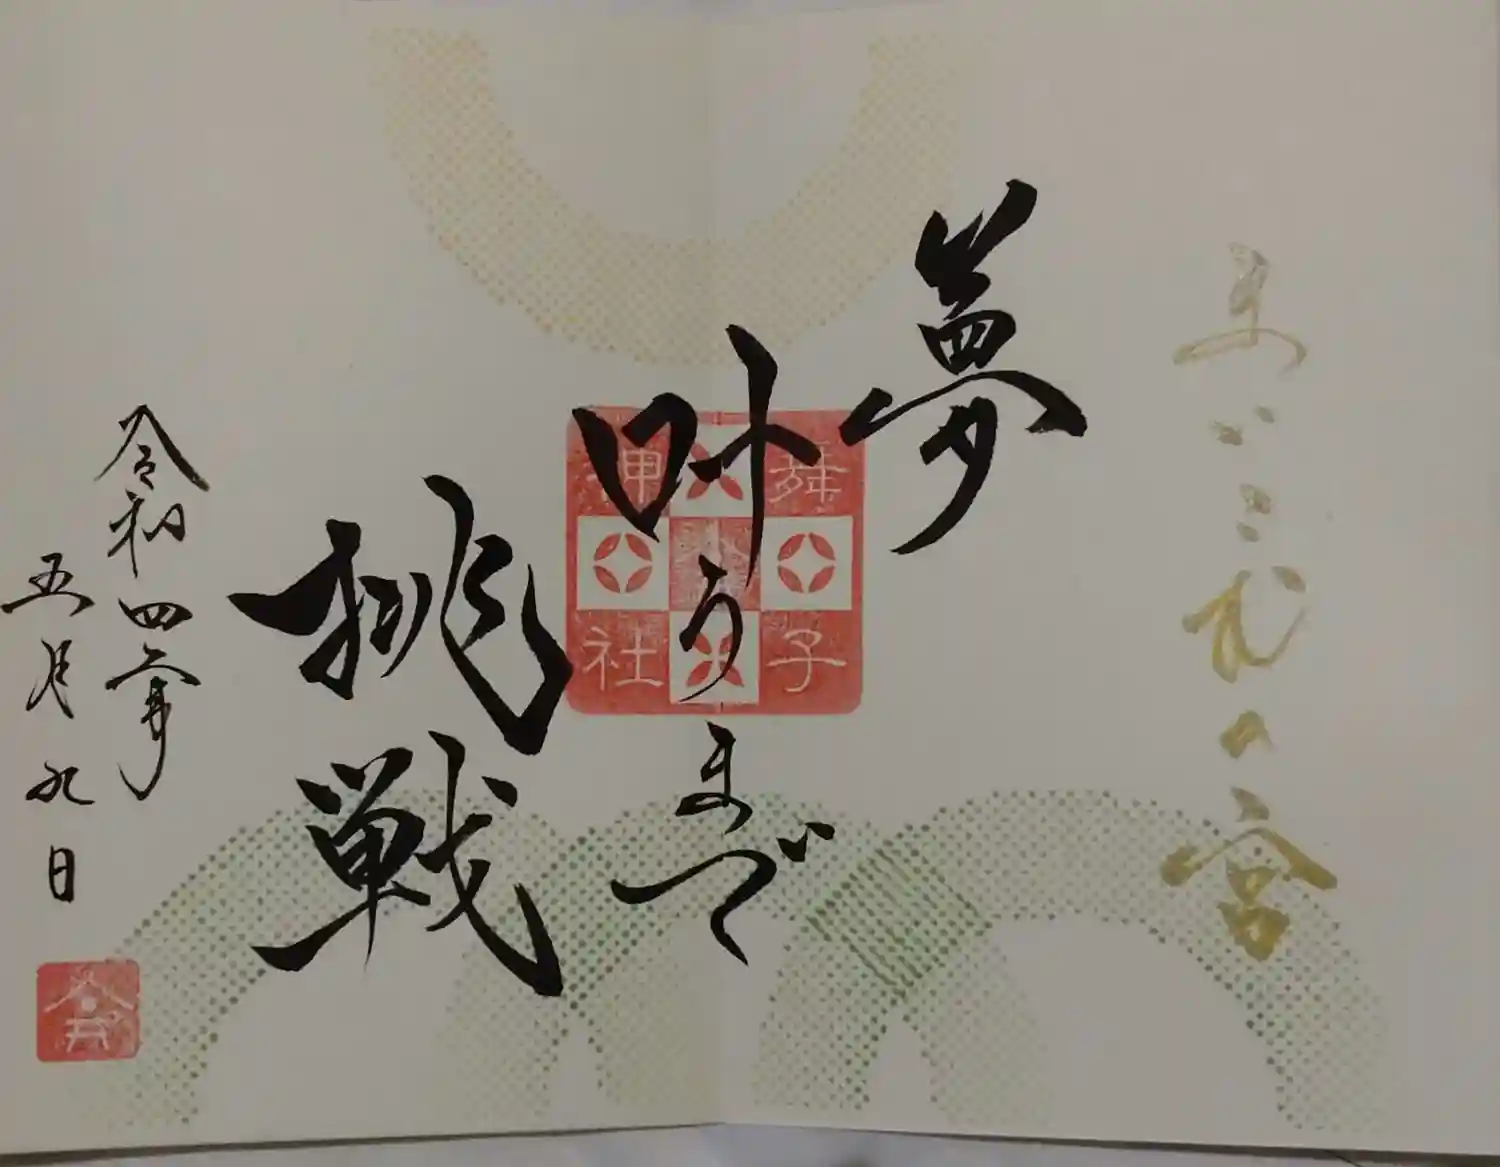 まごころの宮
夢
叶うまで
挑戦
舞子
神社
令和四年
五月九日